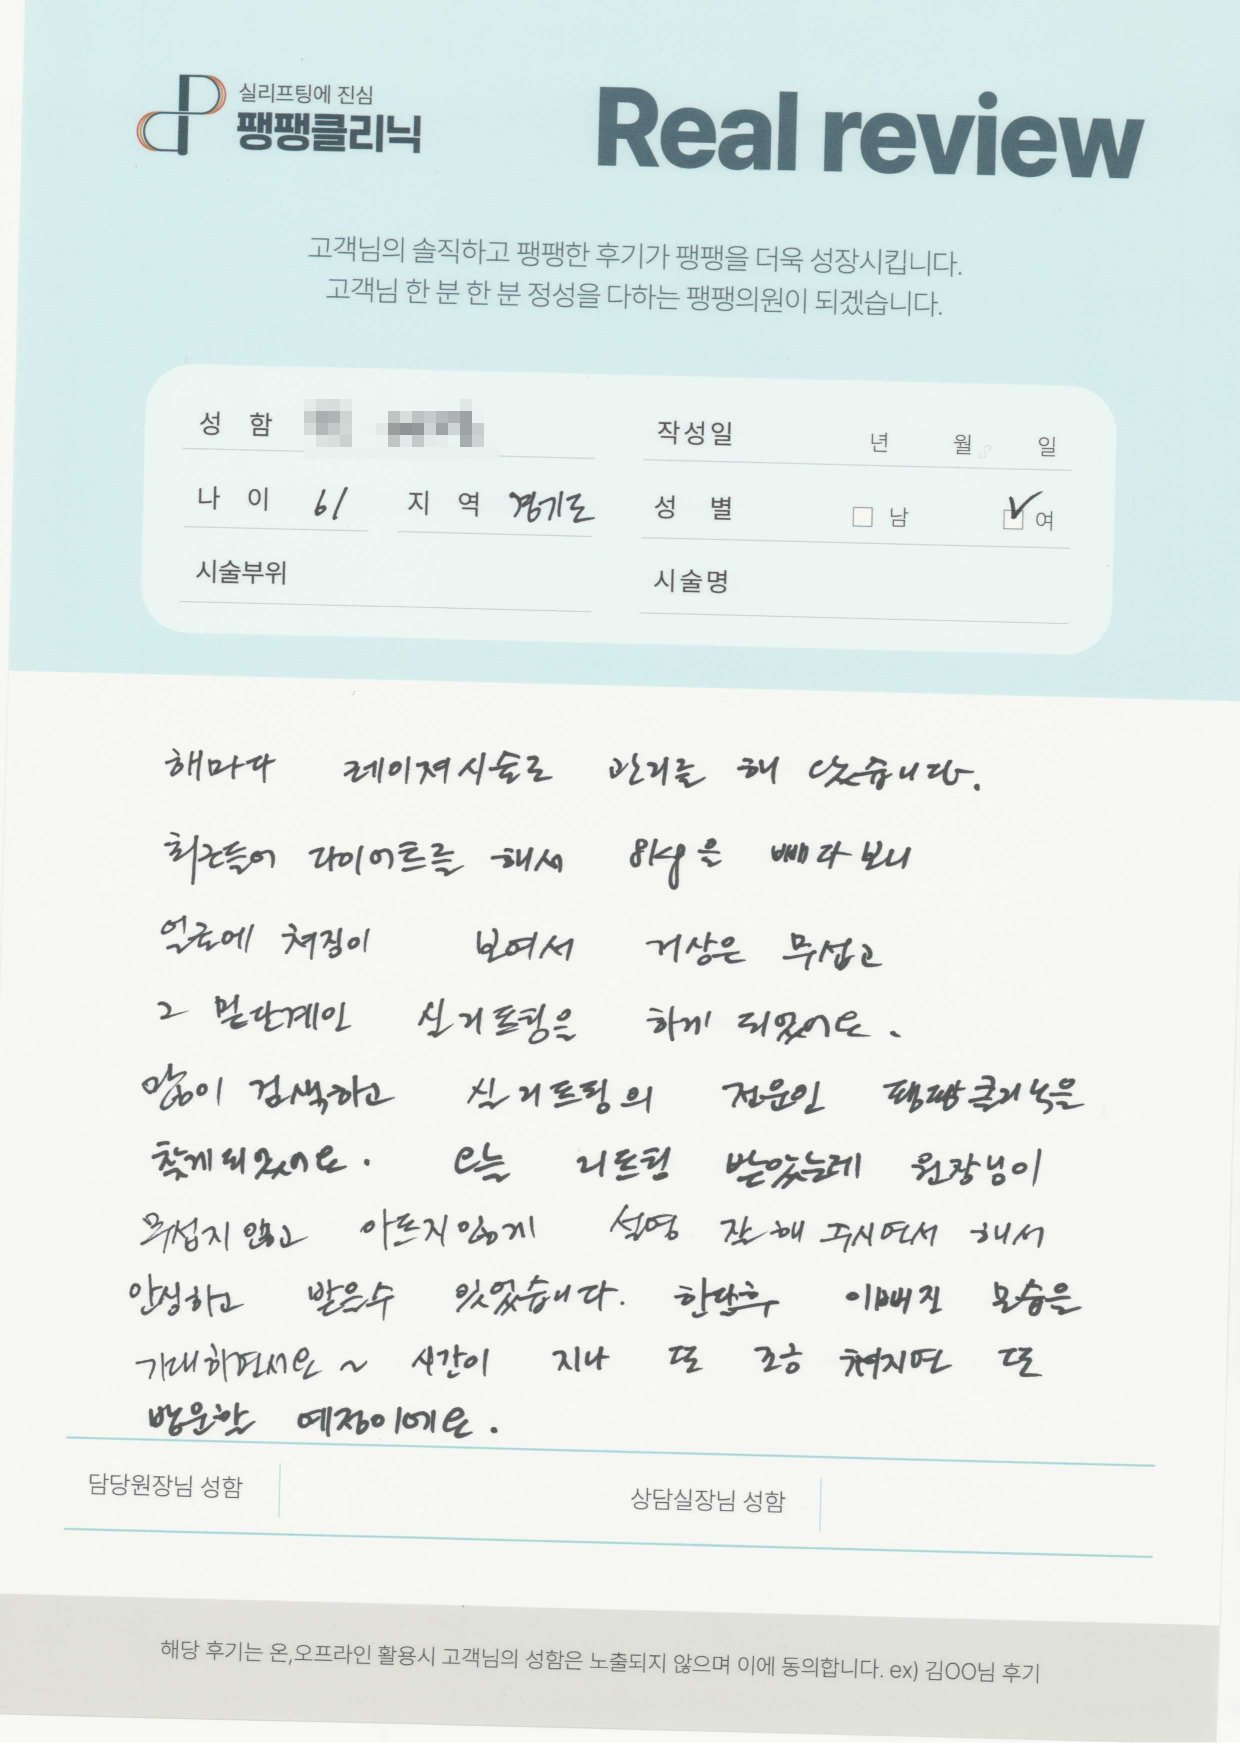 실리프팅에 진심
팽팽클리닉
Real review
고객님의 솔직하고 팽팽한 후기가 팽팽을 더욱 성장시킵니다.
고객님 한 분 한 분 정성을 다하는 팽팽의원이 되겠습니다.
성 함 작성일 년 월 일
나 이 61 지 역 경기도 성 별 남 여
시술부위 시술명
해마다 레이져시술로 관리를 해 왔습니다.
최근들어 다이어트를 해서 8kg을 빼다보니
얼굴에 쳐짐이 보여서 거상은 무섭고
그 밑단계인 실리프팅을 하게 되었어요.
많이 검색하고 실리프팅의 전문인 팽팽클리닉을
찾게되었어요. 오늘 리프팅 받았는데 원장님이
무섭지 않고 아프지않게 설명 잘 해 주시면서 해서
안심하고 받을수 있었습니다. 한달후 이뻐진 모습을
기대하면서요~ 시간이 지나 또 조금 쳐지면 또
방문할 예정이에요.
담당원장님 성함 상담실장님 성함
해당 후기는 온,오프라인 활용시 고객님의 성함은 노출되지 않으며 이에 동의합니다. ex) 김OO님 후기